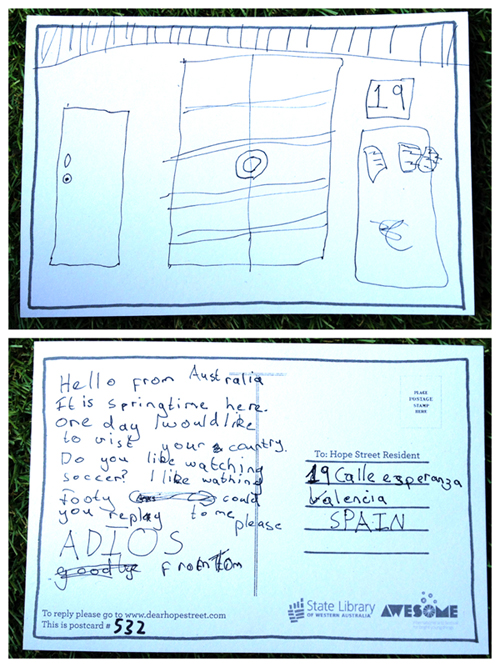 19
Hello from Australia
It is springtime here.
one day I would like
to vist your country.
Do you like watching
soccer? I like wathing
footy could
you replay to me please
ADIOS
goodbye from Tom
To reply please go to www.dearhopestreet.com
This is postcard # 532
PLACE
POSTAGE
STAMP
HERE
To: Hope Street Resident
19 Calle esperanza
Valencia
SPAIN
State Library
OF WESTERN AUSTRALIA
AWESOME